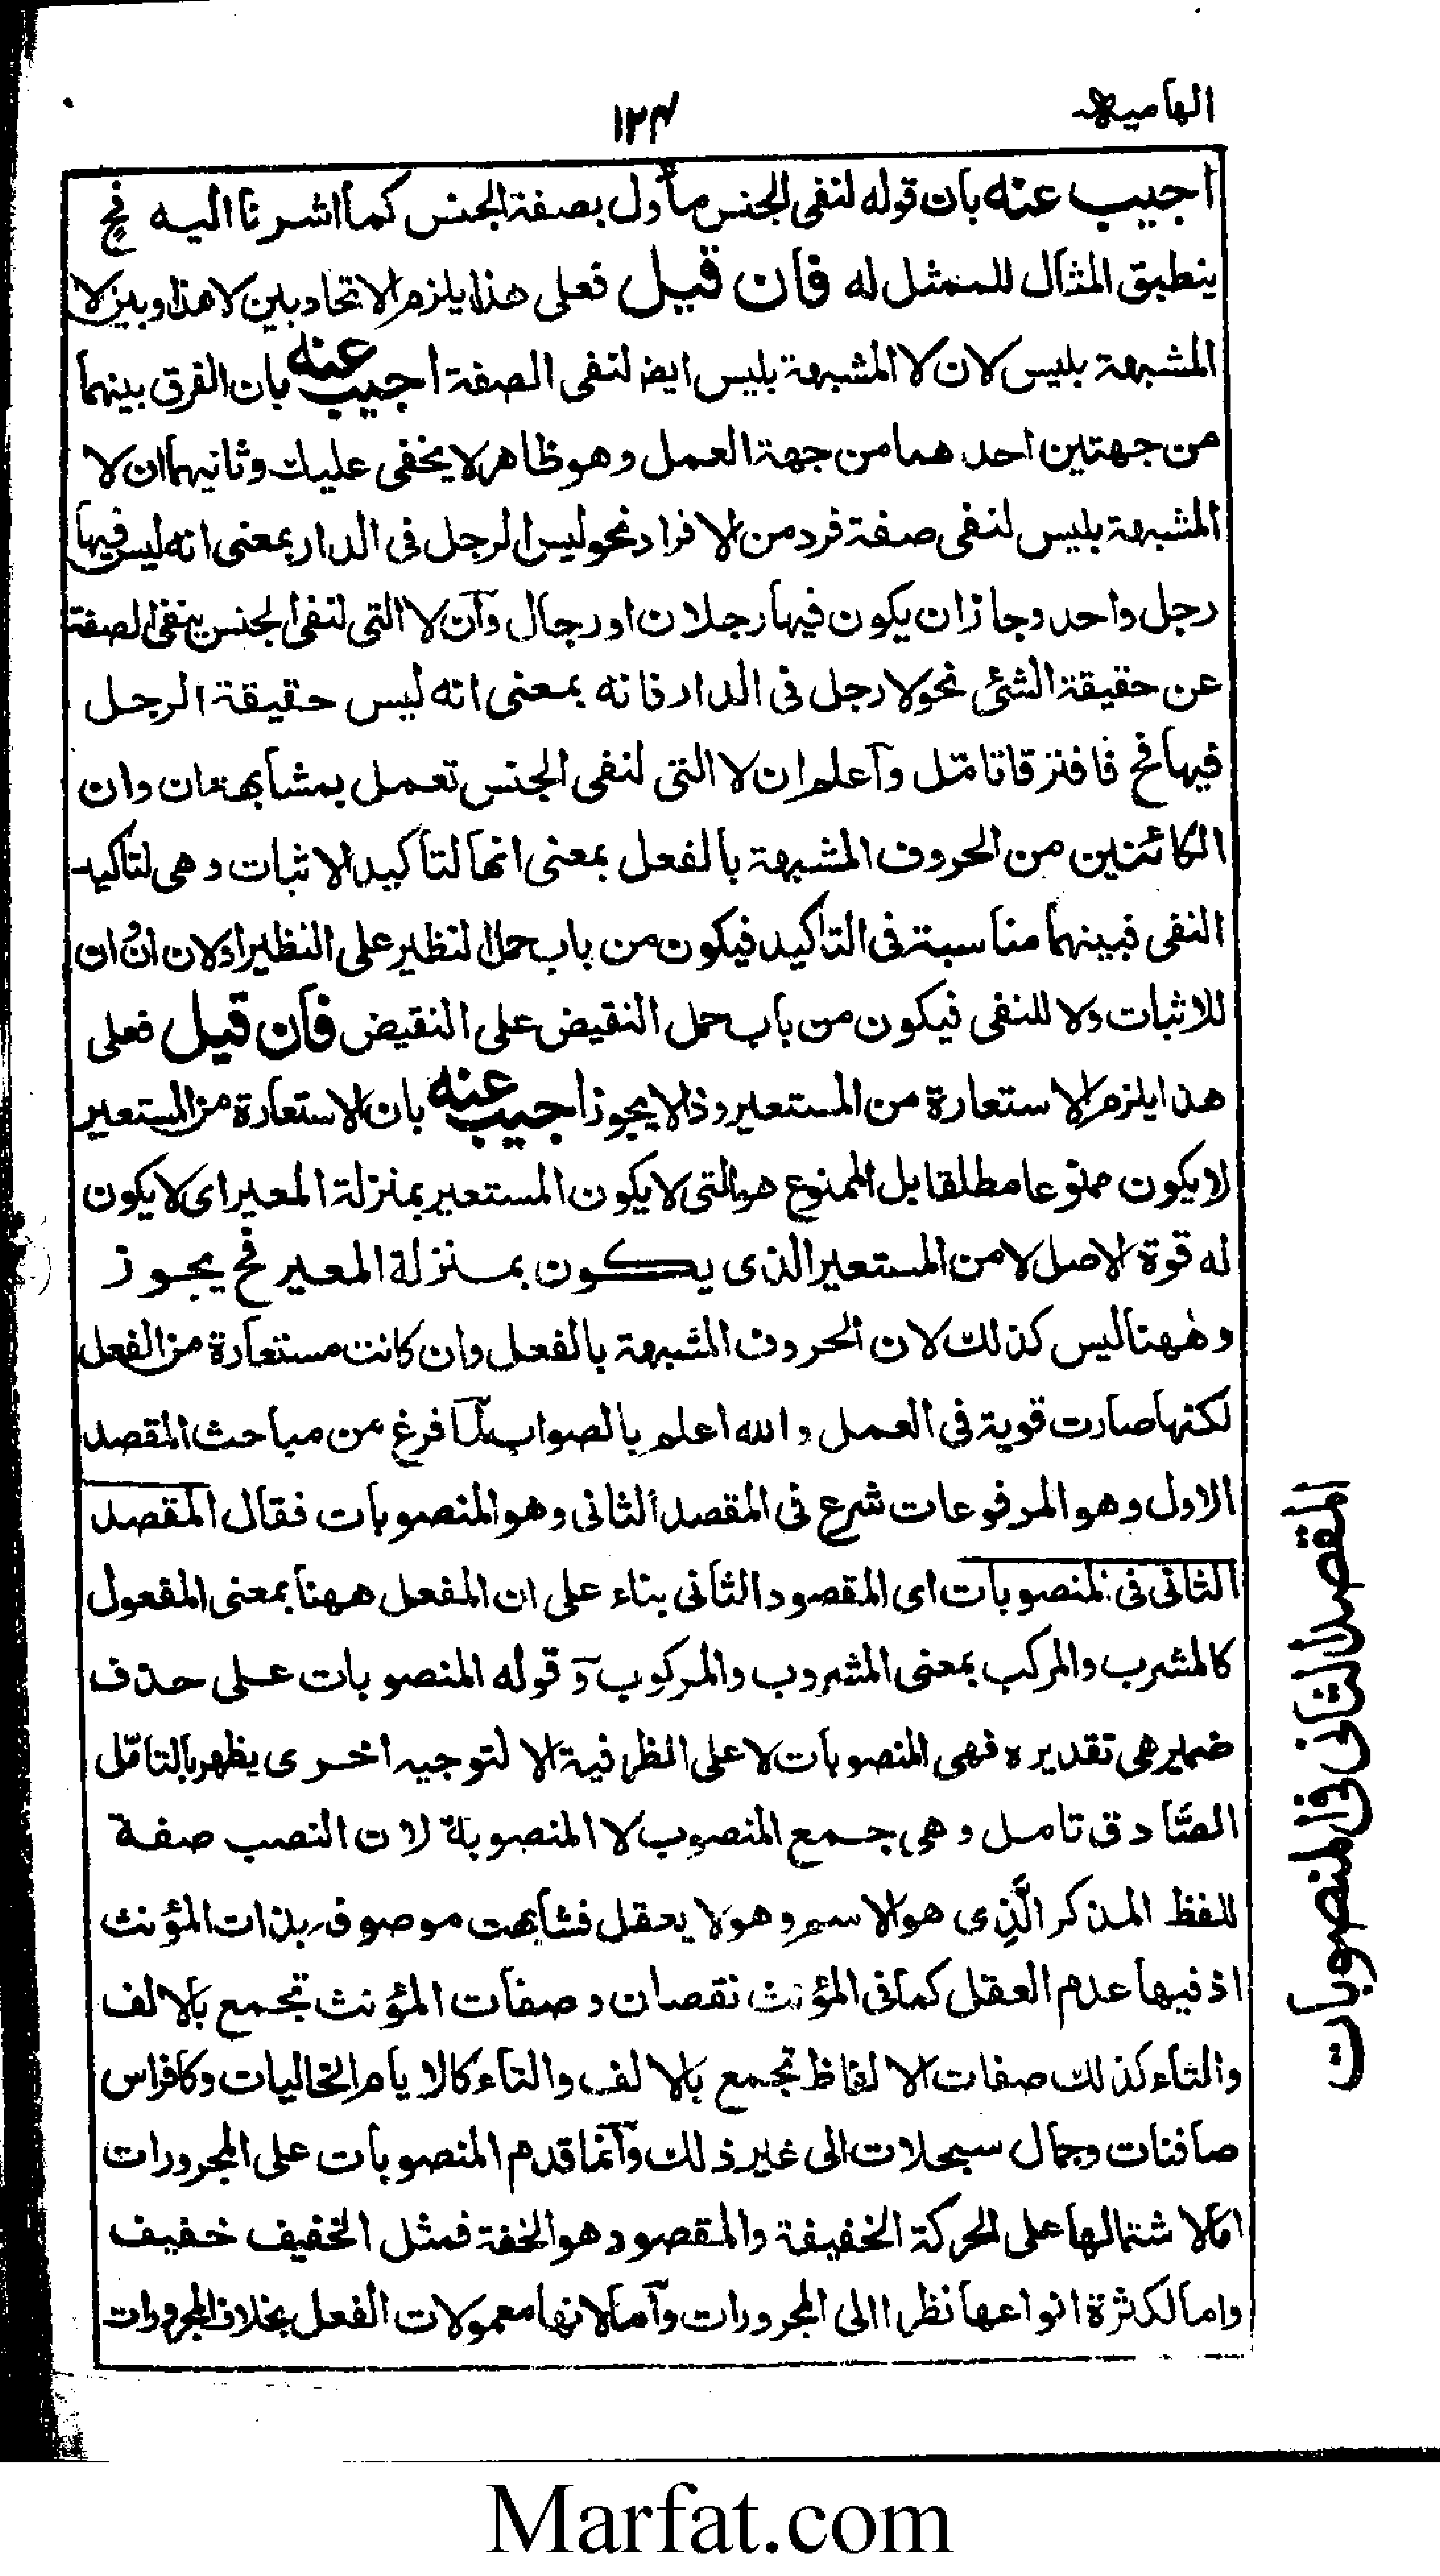 الهاميه
١٢٤
اجيب عنه بان قوله لنفى الجنس مأول بصفة الجنس كما اشرنا اليه فح
ينطبق المثال للممثل له فان قيل فعلى هذا يلزم الاتحاد بين لا هذا وبين لا
المشبهة بليس لان لا المشبهة بليس ايضا لنفى الصفة اجيب عنه بان الفرق بينهما
من جهتين احدهما من جهة العمل وهو ظاهر لا يخفى عليك وثانيهما ان لا
المشبهة بليس لنفى صفة فرد من الافراد نحو ليس الرجل فى الدار بمعنى انه ليس فيها
رجل واحد وجازان يكون فيها رجلان او رجال وان لا التى لنفى الجنس ينفى الصفة
عن حقيقة الشئ نحو لا رجل فى الدار فانه بمعنى انه ليس حقيقة الرجل
فيها فح فافترقا تامّل واعلم ان لا التى لنفى الجنس تعمل بمشابهة ان وان
الكائنين من الحروف المشبهة بالفعل بمعنى انها لتاكيد الاثبات وهى لتاكيد
النفى فبينهما مناسبة فى التاكيد فيكون من باب حمل النظير على النظير اولان ان ان
للاثبات ولا للنفى فيكون من باب حمل النقيض على النقيض فان قيل فعلى
هذا يلزم الاستعارة من المستعير وذا لا يجوز اجيب عنه بان الاستعارة من المستعير
لا يكون ممنوعا مطلقا بل الممنوع هو التى لا يكون المستعير بمنزلة المعير اى لا يكون
له قوة الاصل لا من المستعير الذى يكون بمنزلة المعير فح يجوز
وههنا ليس كذلك لان الحروف المشبهة بالفعل وان كانت مستعارة من الفعل
لكنها صارت قوية فى العمل والله اعلم بالصواب لما فرغ من مباحث المقصد
الاول وهو المرفوعات شرع فى المقصد الثانى وهو المنصوبات فقال المقصد
الثانى فى المنصوبات اى المقصود الثانى بناء على ان المفعل ههنا بمعنى المفعول
كالمشرب والمركب بمعنى المشروب والمركوب وقوله المنصوبات على حذف
ضمير هى تقديره فهى المنصوبات لا على الظرفية الا لتوجيه اخرى يظهر بالتامّل
الصّادق تامل وهى جمع المنصوب لا المنصوبة لان النصب صفة
للفظ المذكر الَّذِى هو الاسم وهو لا يعقل فشابهت موصوفه بذات المؤنث
اذ فيها عدم العقل كما فى المؤنث نقصان وصفات المؤنث تجمع بالالف
والتاء كذلك صفات الالفاظ تجمع بالالف والتاء كالايام الخاليات وكافراس
صافنات وجمال سبحلات الى غير ذلك وانما قدم المنصوبات على المجرورات
اما لاشتمالها على الحركة الخفيفة والمقصود هو الخفة فمثل الخفيف خفيف
واما لكثرة انواعها نظرا الى المجرورات واما لانها معمولات الفعل بخلاف المجرورات
المقصد الثانى فى المنصوبات
Marfat.com